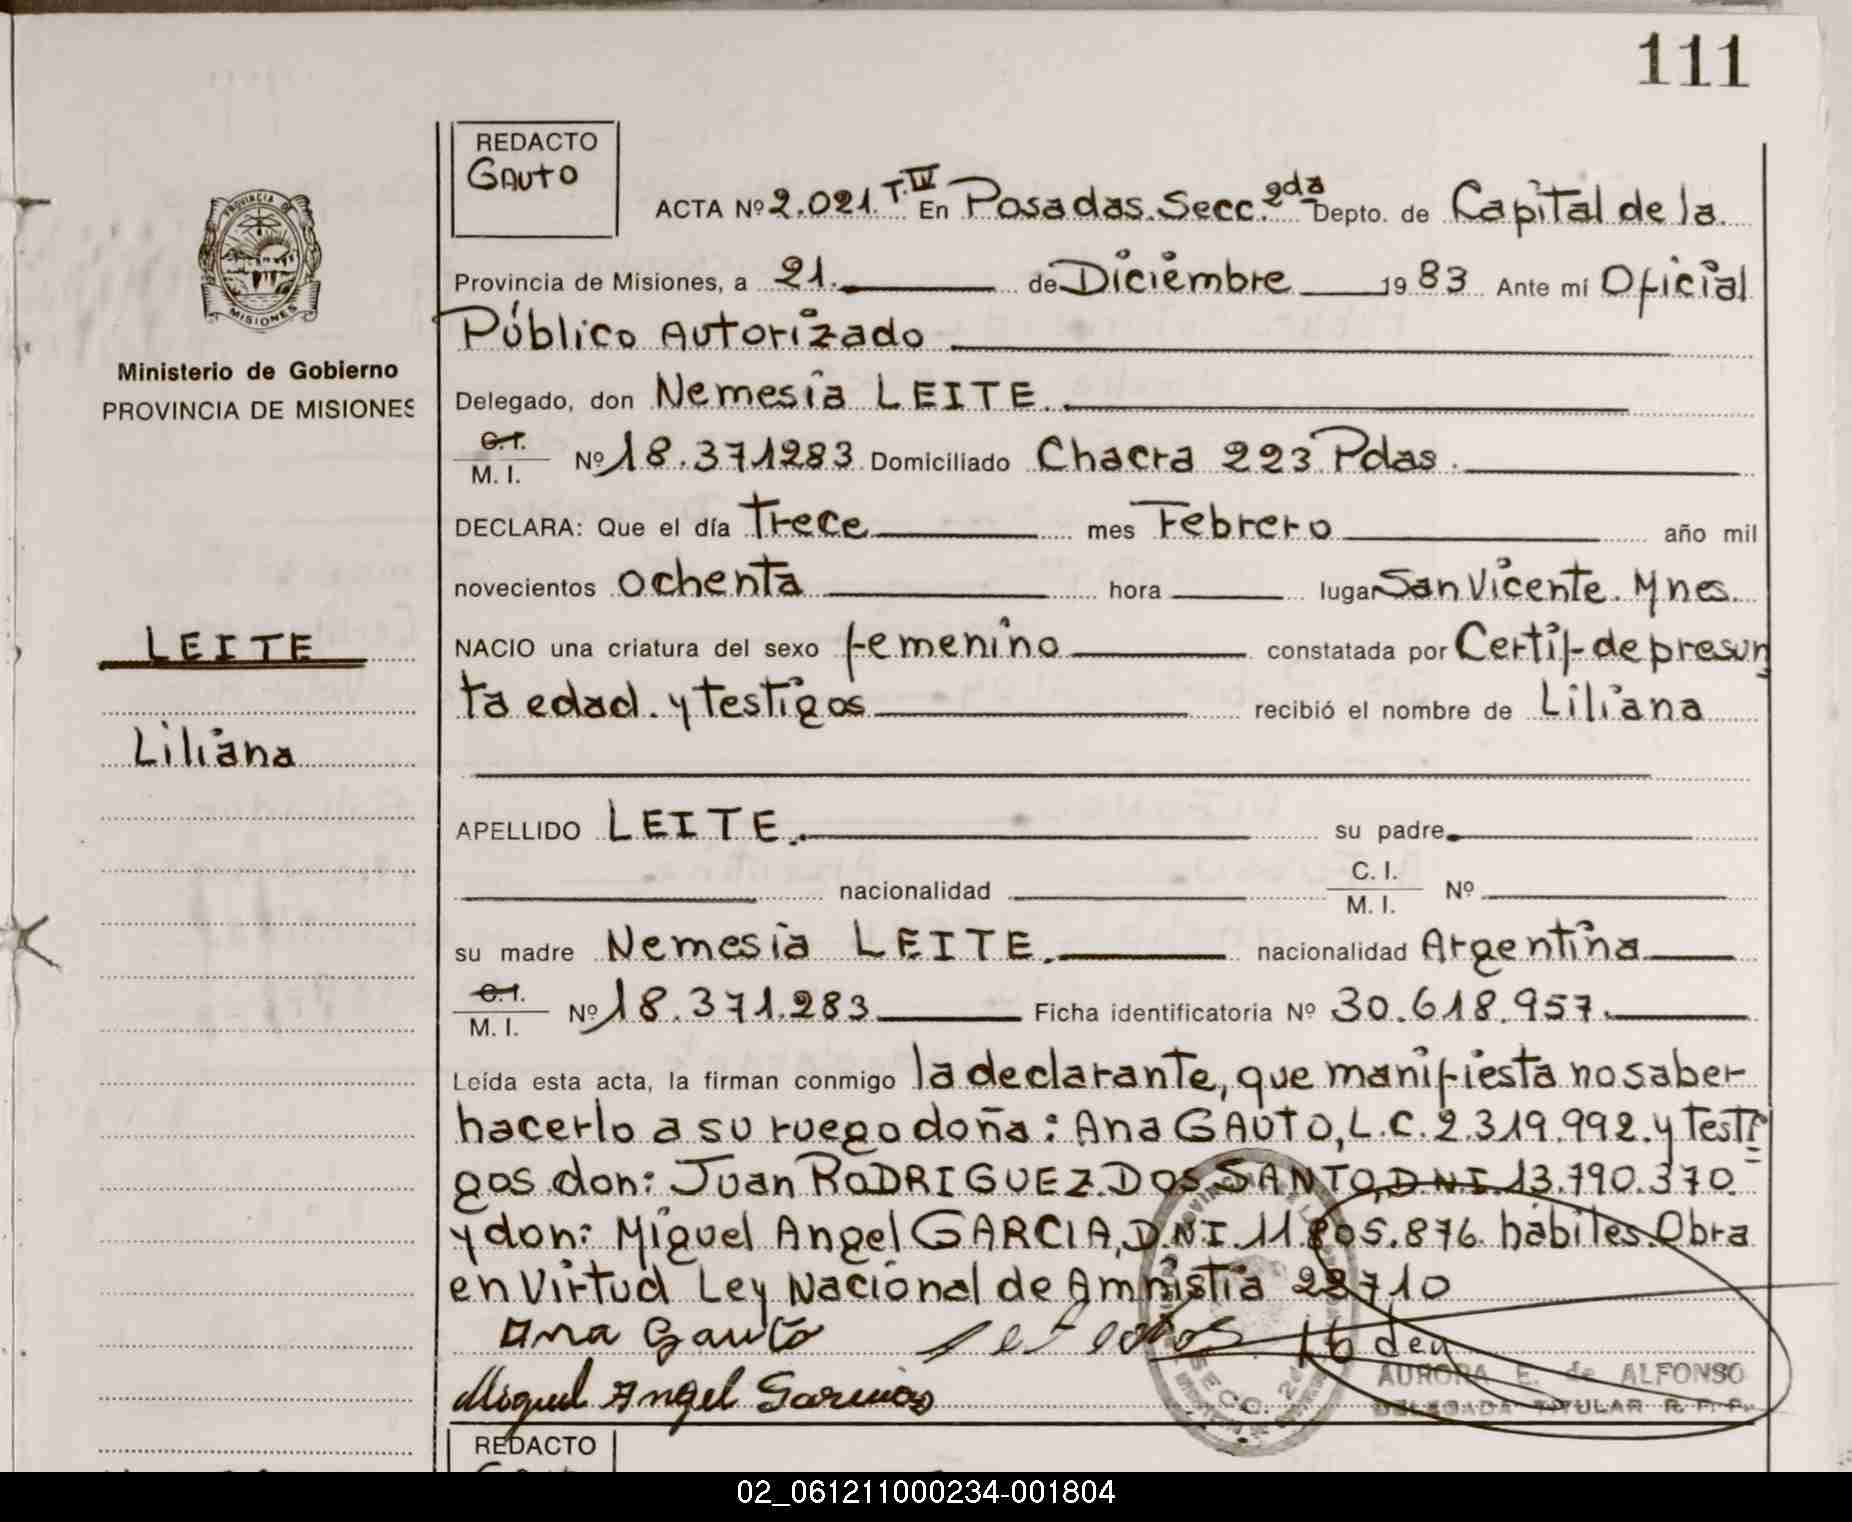 111
REDACTO
GAUTO
ACTA Nº 2.021. T.IV En Posadas. Secc. 2da Depto. de Capital de la
Provincia de Misiones, a 21. de Diciembre 19 83 Ante mí Oficial
Público Autorizado
Ministerio de Gobierno
PROVINCIA DE MISIONES
Delegado, don Nemesia LEITE.
C.I. / M. I. Nº 18.371283 Domiciliado Chacra 223 Pdas.
DECLARA: Que el día trece mes Febrero año mil
novecientos ochenta hora lugar San Vicente. Mnes.
LEITE
NACIO una criatura del sexo femenino constatada por Certif-de presun
ta edad. y testigos recibió el nombre de Liliana
Liliana
APELLIDO LEITE. su padre
nacionalidad C. I. / M. I. Nº
su madre Nemesia LEITE. nacionalidad Argentina
C.I. / M. I. Nº 18.371.283 Ficha identificatoria Nº 30.618.957.
Leída esta acta, la firman conmigo la declarante, que manifiesta no saber
hacerlo a su ruego doña: Ana GAUTO, L.C. 2.319.992. y testi
gos don: Juan RODRIGUEZ. DOS SANTO, D.NI. 13.790.370.
y don: Miguel Angel GARCIA, D.N.I. 11.805.876. hábiles. Obra
en Virtud Ley Nacional de Amnistia 22710
Ana Gauto
Miguel Angel
AURORA E. de ALFONSO
DELEGADA TITULAR R. P. P.
SECC. 2da
PROVINCIA DE
MISIONES
REDACTO
02_061211000234-001804